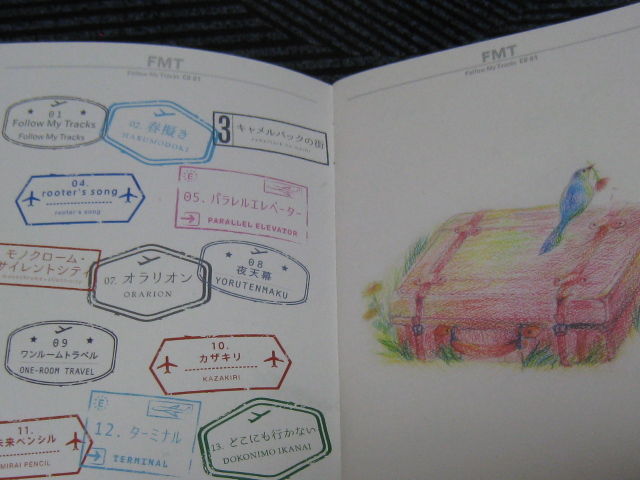 FMT
Follow My Tracks EB-01
01
Follow My Tracks
Follow My Tracks
02. 春擬き
HARUMODOKI
3 キャメルバックの街
04.
rooter's song
rooter's song
05. パラレルエレベーター
PARALLEL ELEVATOR
モノクローム・
サイレントシティ
07. オラリオン
ORARION
08
夜天幕
YORUTENMAKU
09
ワンルームトラベル
ONE-ROOM TRAVEL
10.
カザキリ
KAZAKIRI
11.
未来ペンシル
MIRAI PENCIL
12. ターミナル
TERMINAL
13. どこにも行かない
DOKONIMO IKANAI
FMT
Follow My Tracks EB-01